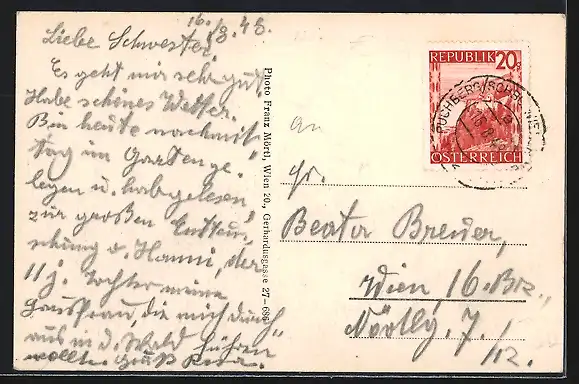 16./8.48.
Liebe Schwester!
Es geht mir sehr gut.
Habe schönes Wetter.
Bin heute nachmit-
tag im Garten ge-
legen u. hab gelesen,
zur großen Enttäu-
schung v. Hanni, der
11 j. Tochter meiner
Hausfrau, die mich durch
aus in d. Wald führen
wollte. Gruß
Photo Franz Mörtl, Wien 20., Gerhardusgasse 27
REPUBLIK 20g
ÖSTERREICH
PUCHBERG
an
Fr.
Beate Breuer,
Wien, 16. Bez.,
7./
12.